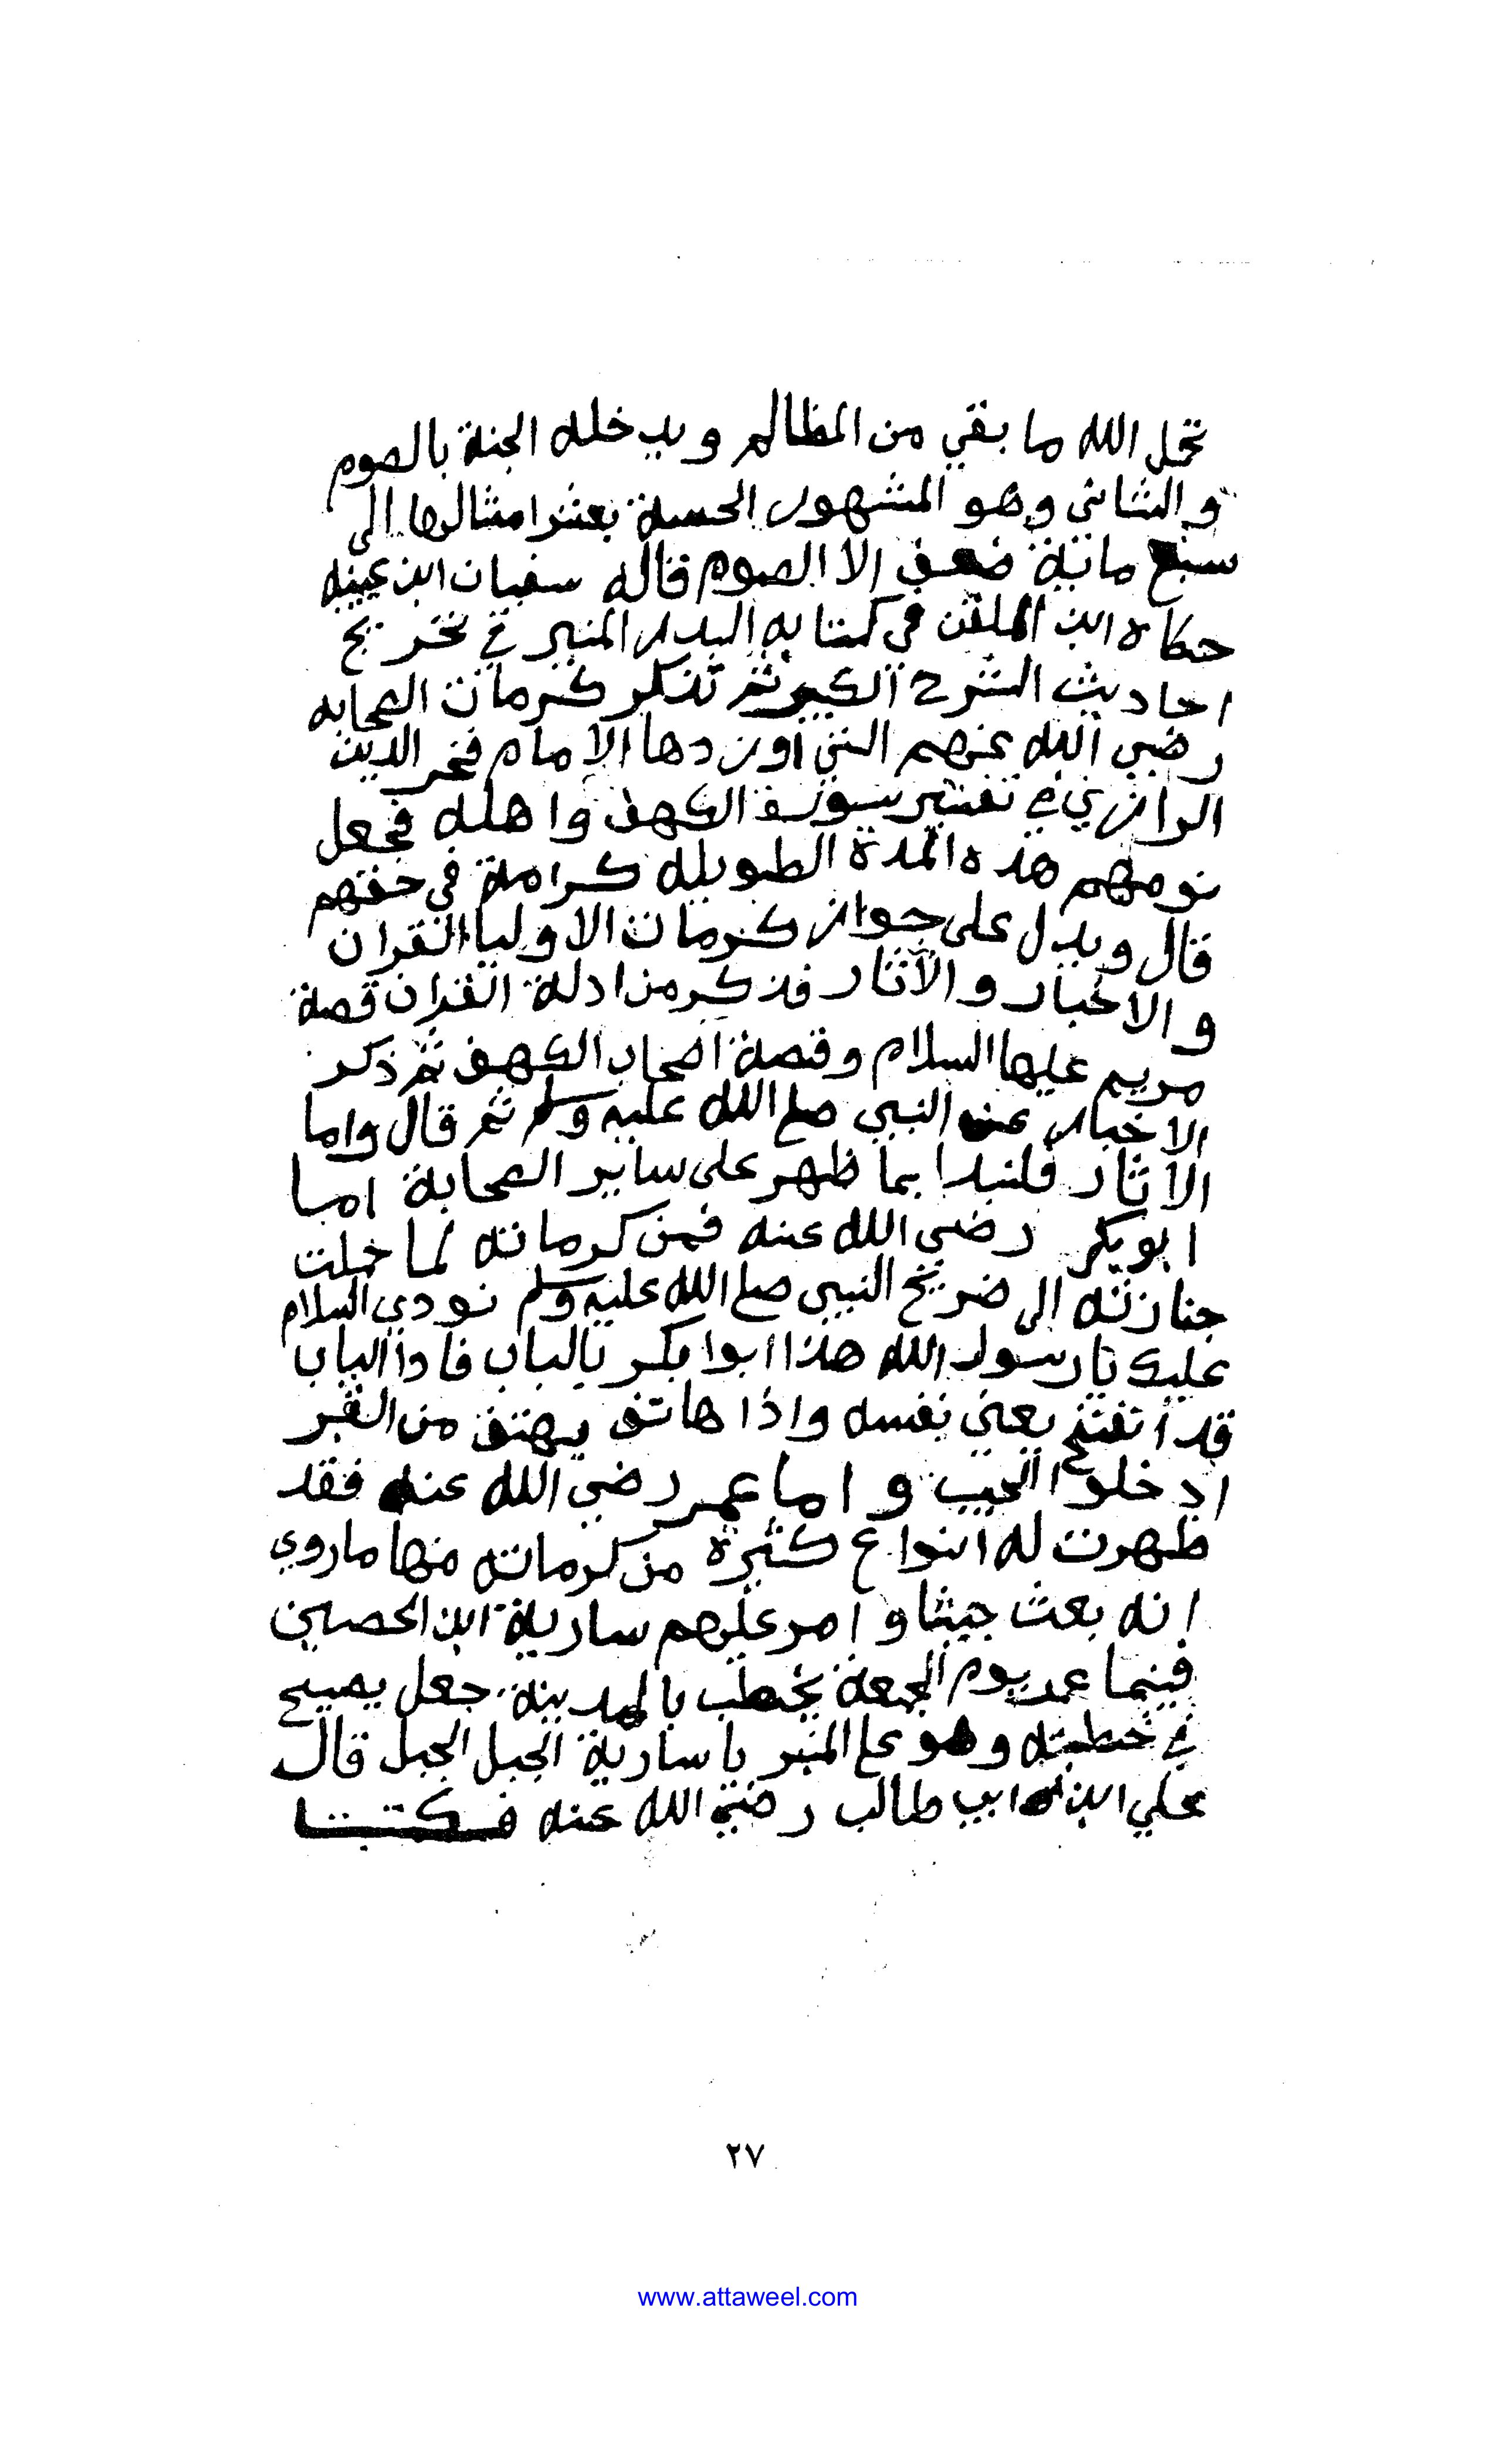 تحمل الله ما بقي من المظالم ويدخله الجنة بالصوم
والثاني وهو المشهور الحسنة بعشر امثالها الى
سبع مائة ضعف الا الصوم قاله سفيان ابن عيينه
حكاه ابن الملقن في كتابه البدر المنير في تخريج
احاديث الشرح الكبير ثم نذكر كرمات الصحابه
رضي الله عنهم التي أوردها الامام فخر الدين
الرازي في تفسير سورة الكهف واهله فجعل
نومهم هذه المدة الطويله كرامة في حقهم
قال ويدل على جواز كرمات الاوليا القران
والاخبار والآثار فذكر من ادلة القران قصة
مريم عليها السلام وقصة اصحاب الكهف ثم ذكر
الاخبار عن النبي صلى الله عليه وسلم ثم قال واما
الاثار فلنبدا بما ظهر على ساير الصحابة اما
ابوبكر رضي الله عنه فمن كرماته لما حملت
جنازته الى ضريح النبي صلى الله عليه وسلم نودي السلام
عليك يا رسول الله هذا ابوا بكر بالباب فاذا الباب
قد انفتح يعني نفسه واذا هاتف يهتف من القبر
ادخلوا الحبيب واما عمر رضي الله عنه فقد
ظهرت له انواع كثيرة من كرماته منها ماروي
انه بعث جيشا وامر عليهم سارية ابن الحصين
فبينما عمر يوم الجمعة يخطب بالمدينة جعل يصيح
في خطبته وهو على المنبر يا سارية الجبل الجبل قال
علي ابن ابي طالب رضي الله عنه فكتبنا
٢٧
www.attaweel.com